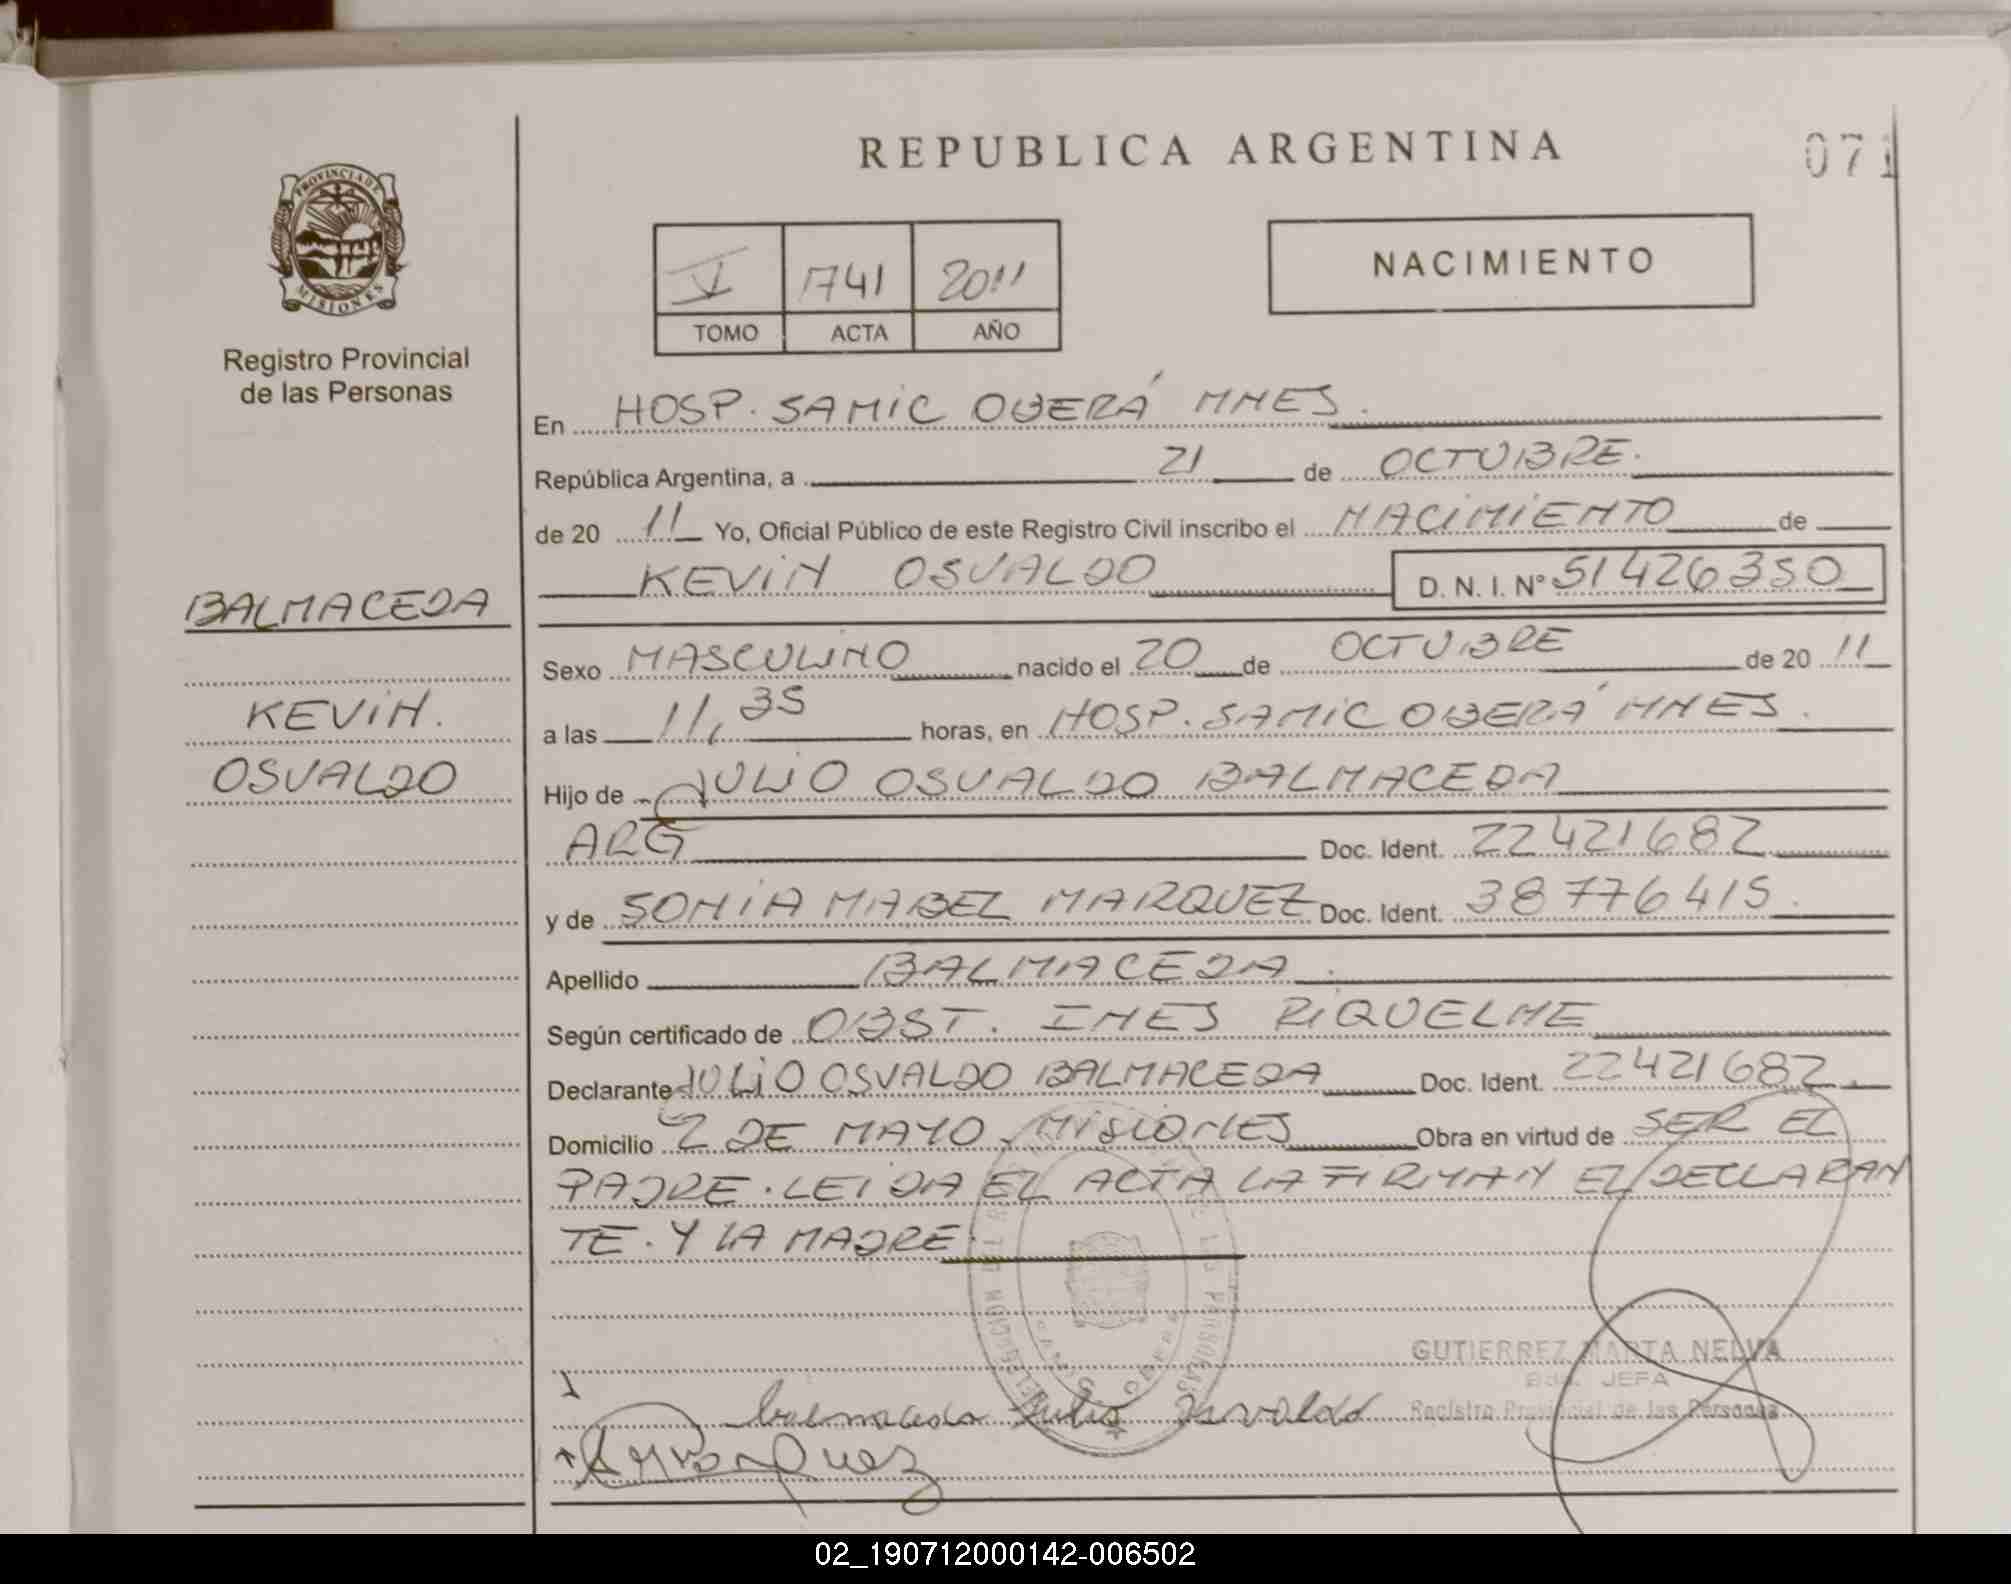 REPUBLICA ARGENTINA
071
PROVINCIA DE
MISIONES
Registro Provincial
de las Personas
V 1741 2011
TOMO ACTA AÑO
NACIMIENTO
En HOSP. SAMIC OBERÁ MNES.
República Argentina, a 21 de OCTUBRE.
de 20 11 Yo, Oficial Público de este Registro Civil inscribo el NACIMIENTO de
KEVIN OSVALDO D. N. I. Nº 51426350
BALMACEDA
KEVIN.
OSVALDO
Sexo MASCULINO nacido el 20 de OCTUBRE de 20 11
a las 11,35 horas, en HOSP. SAMIC OBERÁ MNES.
Hijo de JULIO OSVALDO BALMACEDA
ARG Doc. Ident. 22421682
y de SONIA MABEL MARQUEZ Doc. Ident. 38776415.
Apellido BALMACEDA.
Según certificado de OBST. INES RIQUELME
Declarante JULIO OSVALDO BALMACEDA Doc. Ident. 22421682.
Domicilio 2 DE MAYO. MISIONES Obra en virtud de SER EL
PADRE. LEIDA EL ACTA LA FIRMAN EL DECLARAN
TE. Y LA MADRE.
GUTIERREZ MARTA NELVA
JEFA
Registro Provincial de las Personas
balmaceda Julio Osvaldo
Marquez
02_190712000142-006502